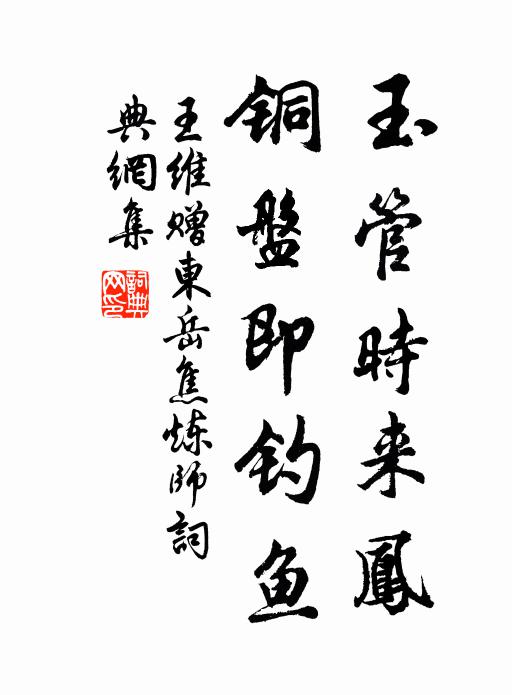 玉管時来鳳
銅盤即钓鱼
王維赠東岳焦炼師詞
典網集
詞典网印